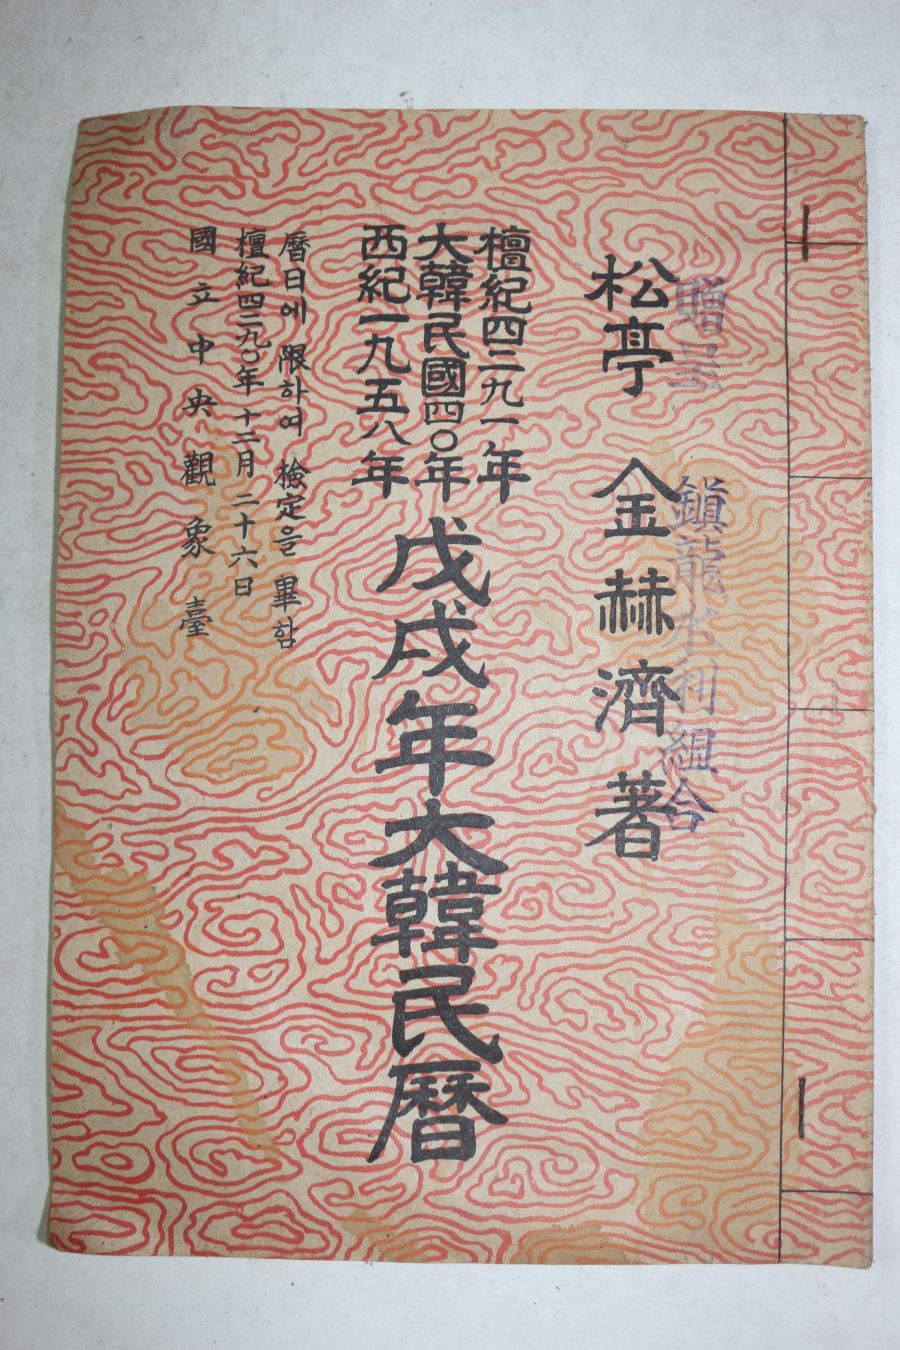 贈呈 鎭龍水利組合
松亭 金赫濟 著
檀紀四二九一年
大韓民國四〇年
西紀一九五八年
戊戌年大韓民曆
曆日에 限하여 檢定을 畢함
檀紀四二九〇年 十二月 二十六日
國立中央觀象臺